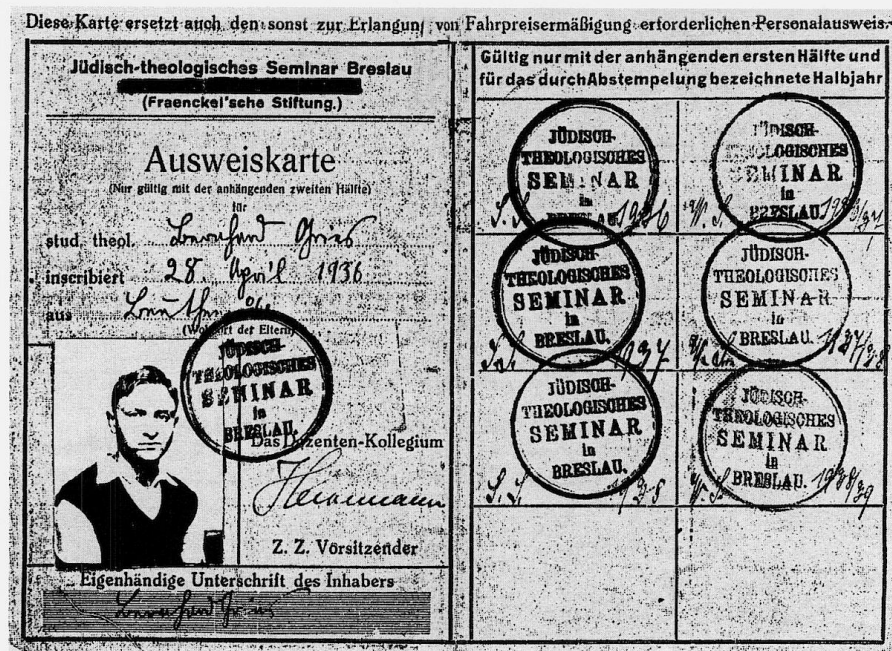 Diese Karte ersetzt auch den sonst zur Erlangung von Fahrpreisermäßigung erforderlichen Personalausweis.
Jüdisch-theologisches Seminar Breslau
(Fraenckel'sche Stiftung.)
Ausweiskarte
(Nur gültig mit der anhängenden zweiten Hälfte)
für
stud. theol. Bernhard Gries
inscribiert 28. April 1936
aus Beuthen O/S.
(Wohnort der Eltern)
JÜDISCH-
THEOLOGISCHES
SEMINAR
in
BRESLAU.
Das Dozenten-Kollegium
Z. Z. Vorsitzender
Eigenhändige Unterschrift des Inhabers
Bernhard Gries
Gültig nur mit der anhängenden ersten Hälfte und
für das durch Abstempelung bezeichnete Halbjahr
JÜDISCH-
THEOLOGISCHES
SEMINAR
in
BRESLAU.
S. S. 1936
JÜDISCH-
THEOLOGISCHES
SEMINAR
in
BRESLAU.
W. S. 1936/37
JÜDISCH-
THEOLOGISCHES
SEMINAR
in
BRESLAU.
S. S. 1937
JÜDISCH-
THEOLOGISCHES
SEMINAR
in
BRESLAU.
1937/38
JÜDISCH-
THEOLOGISCHES
SEMINAR
in
BRESLAU.
S. S. 1938
JÜDISCH-
THEOLOGISCHES
SEMINAR
in
BRESLAU.
W. S. 1938/39